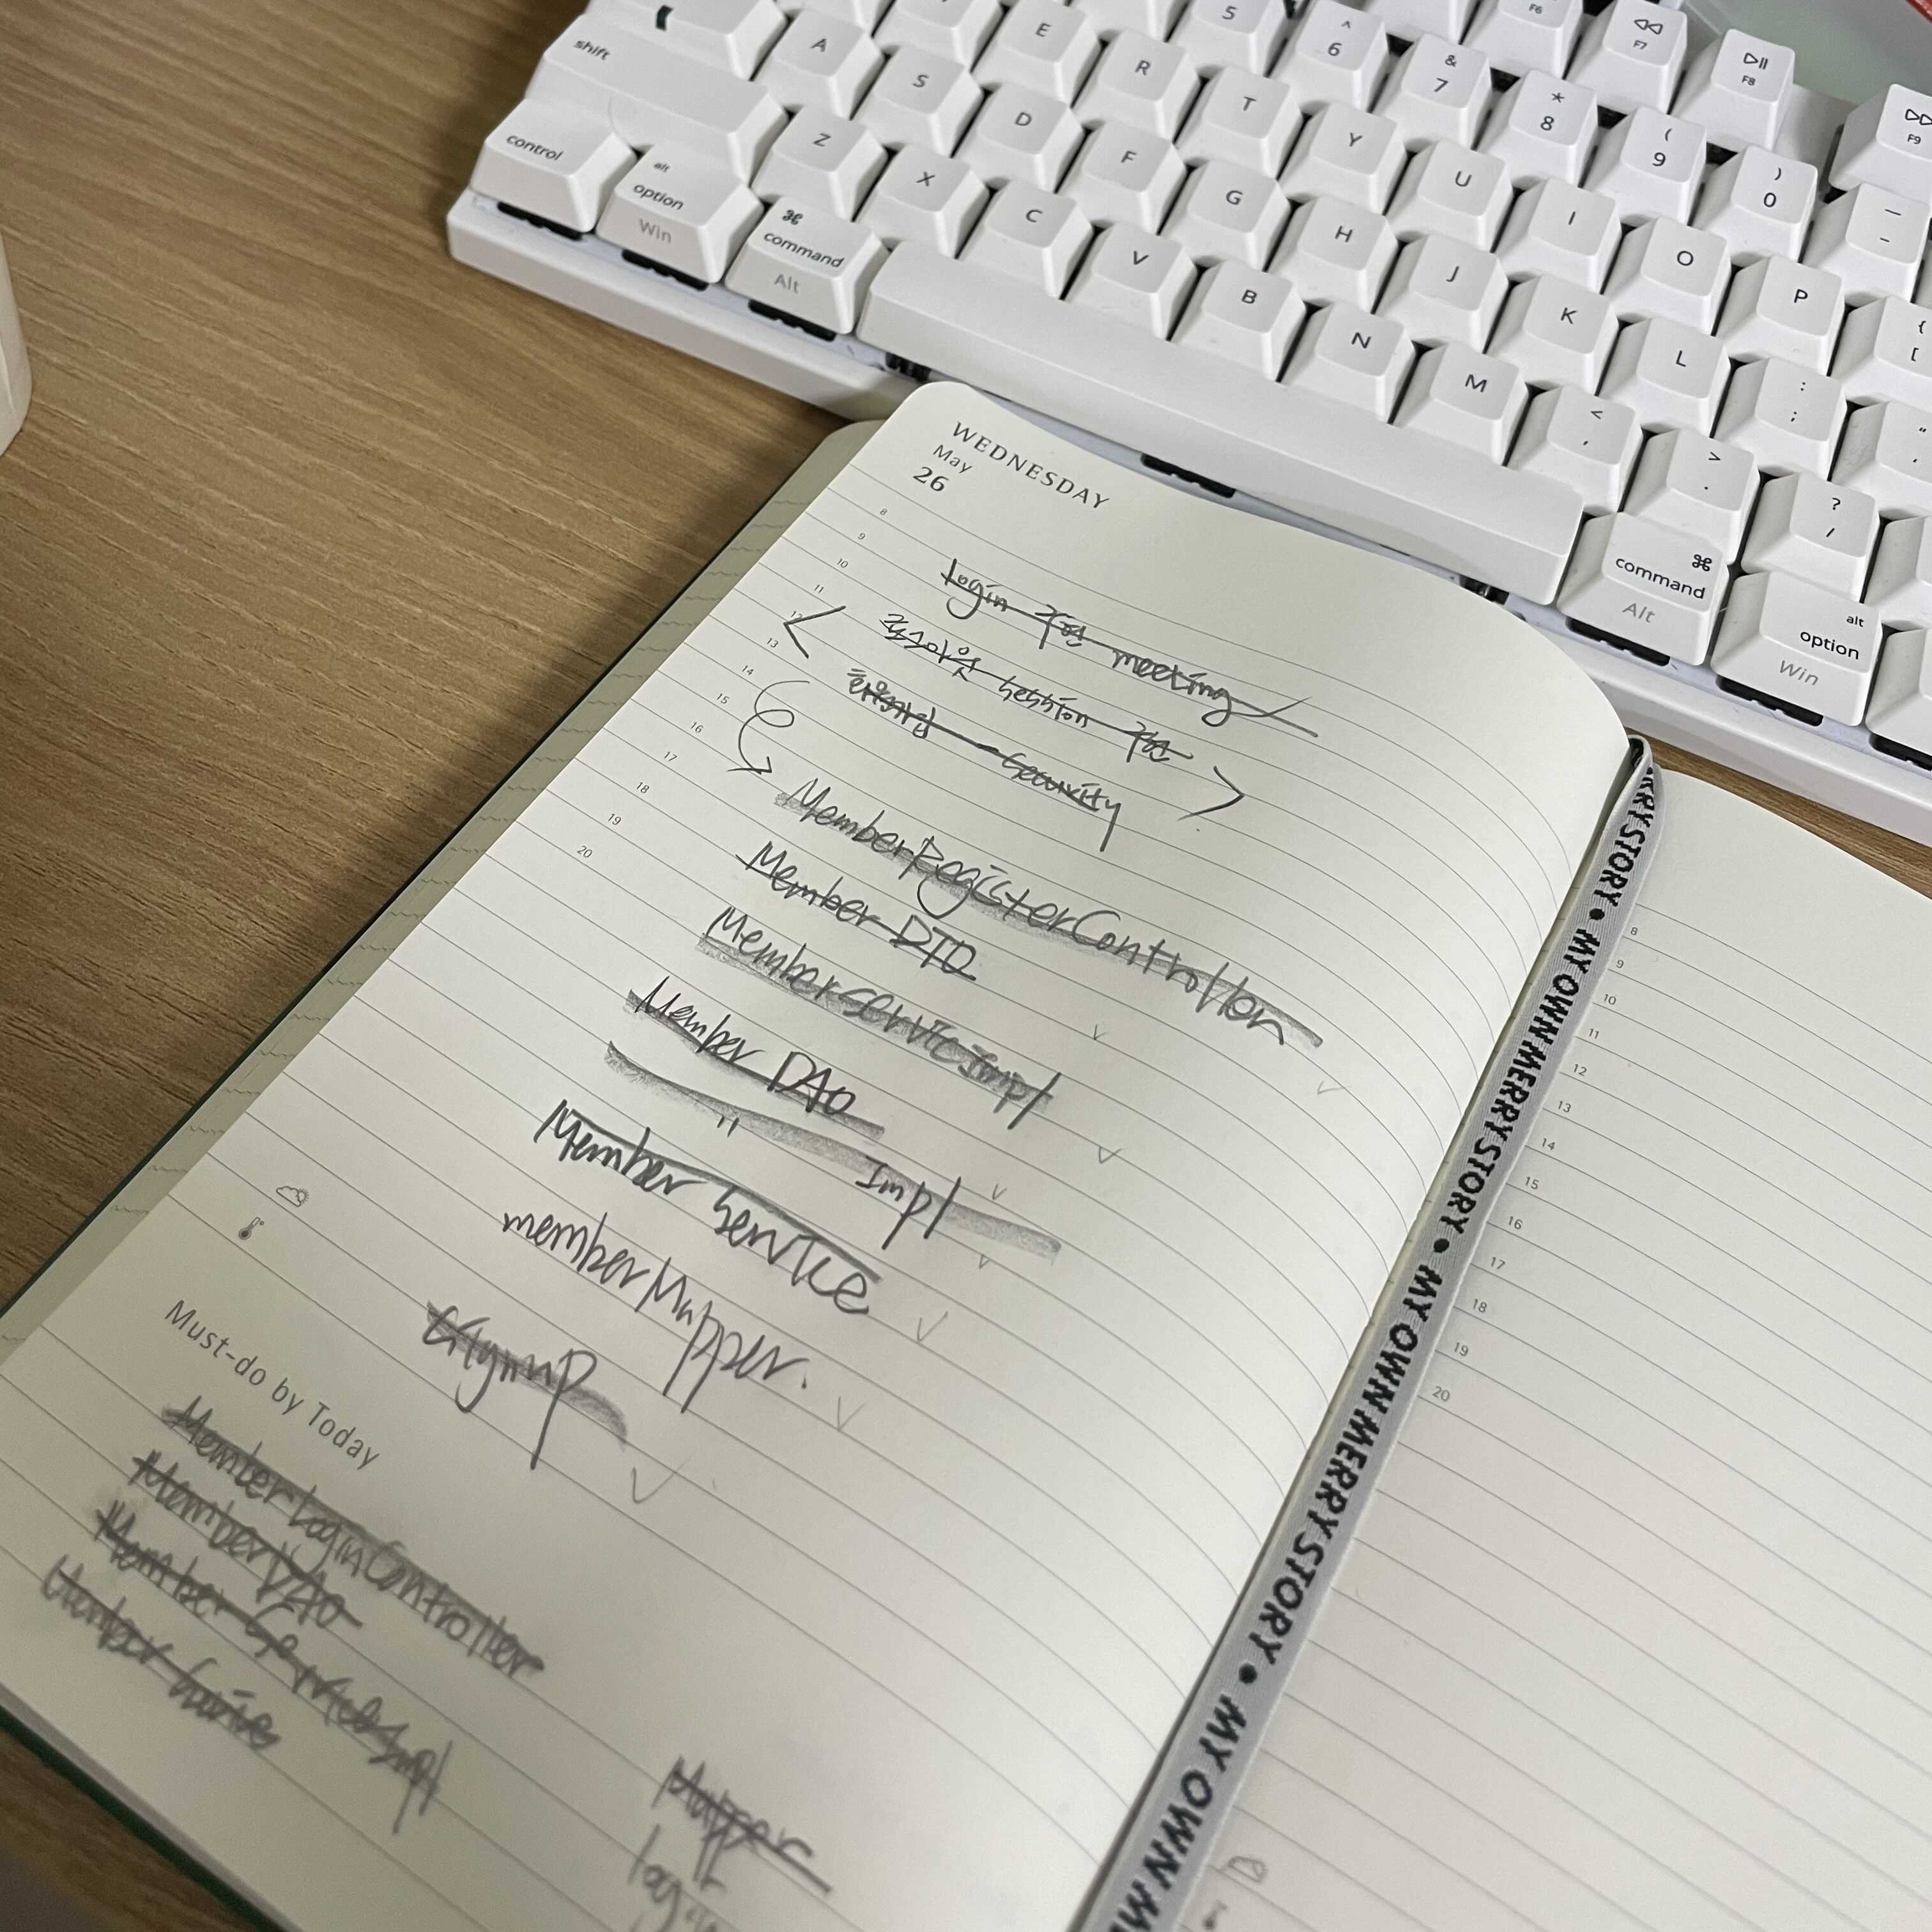 shift
A
S
D
E
R
T
Y
U
I
O
P
5
^
6
&
7
*
8
(
9
)
0
—
-
F6
F7
F8
F9
control
alt
option
Win
⌘
command
Alt
Z
X
C
V
B
N
M
F
G
H
J
K
L
:
;
{
[
<
,
>
.
?
/
⌘
command
Alt
alt
option
Win
WEDNESDAY
May
26
8
9
10
11
12
13
14
15
16
17
18
19
20
Login 구현 meeting
로그아웃 session 구현
회원가입 - Security
MemberRegisterController
Member DTO
MemberServiceImpl
Member DAO
" Impl
Member Service
memberMapper.
Signup
Must-do by Today
MemberLoginController
MemberDAO
MemberServiceImpl
Member Service
Mapper
login
RRY STORY • MY OWN MERRY STORY • MY OWN MERRY STORY • MY OWN M
8
9
10
11
12
13
14
15
16
17
18
19
20